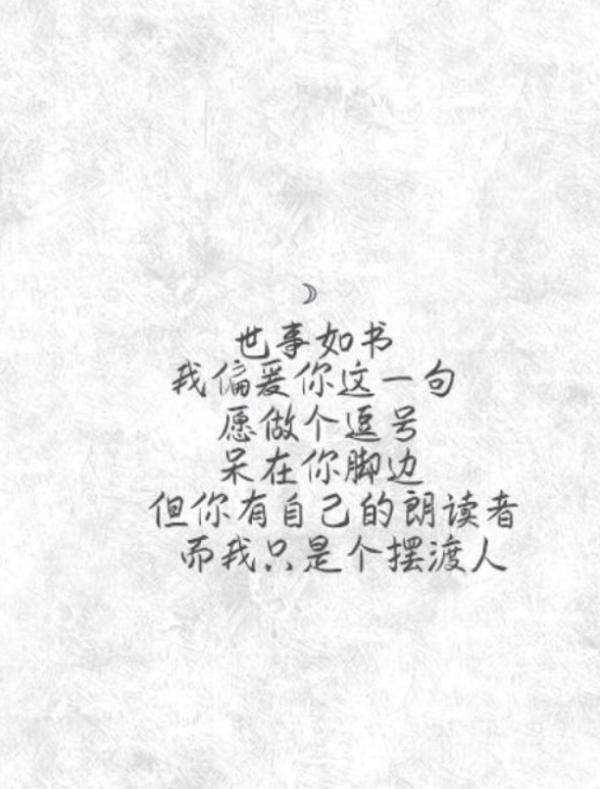 世事如书
我偏爱你这一句
愿做个逗号
呆在你脚边
但你有自己的朗读者
而我只是个摆渡人